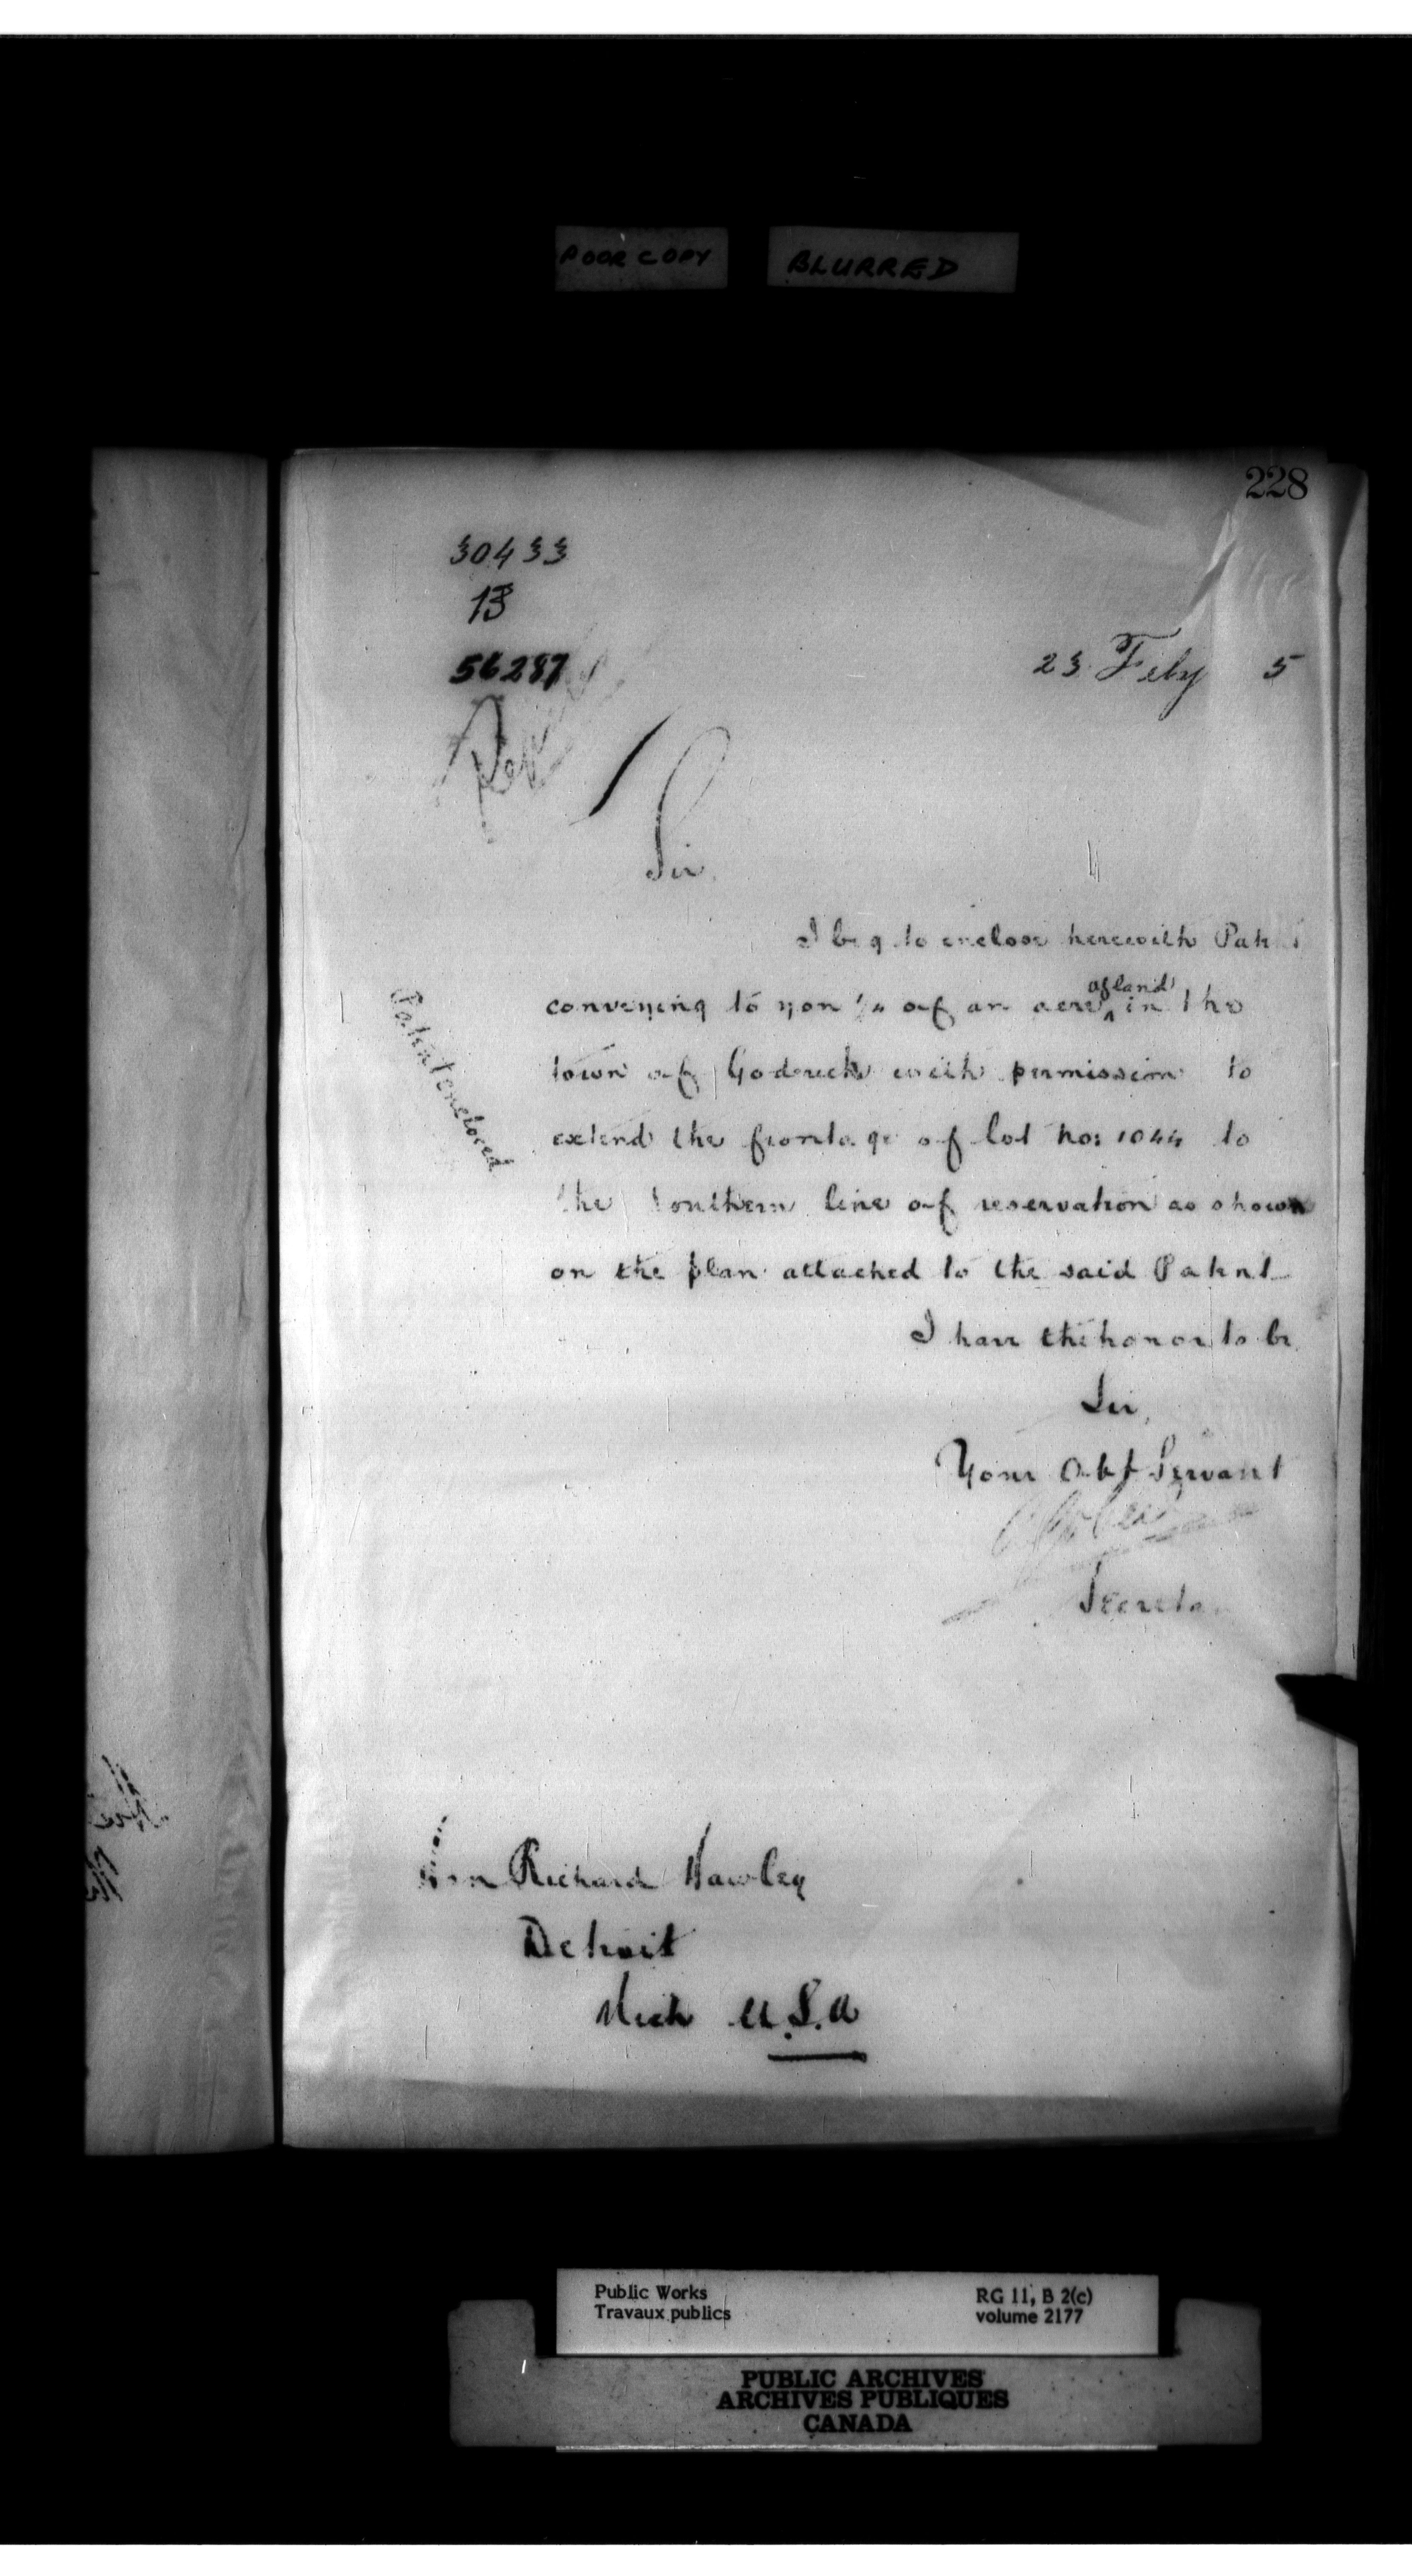 POOR COPY
BLURRED
228
30433
13
56287
23 Feby 5
Sir,
I beg to enclose herewith Patent
conveying to you 1/4 of an acre of land in the
town of Goderich with permission to
extend the frontage of lot no: 1044 to
the Southern line of reservation as shown
on the plan attached to the said Patent
Patent enclosed
I have the honor to be,
Sir,
Your Obt Servant
Secretary
Hon Richard Hawley
Detroit
Mich U.S.A
Public Works
Travaux publics
RG 11, B 2(c)
volume 2177
PUBLIC ARCHIVES
ARCHIVES PUBLIQUES
CANADA